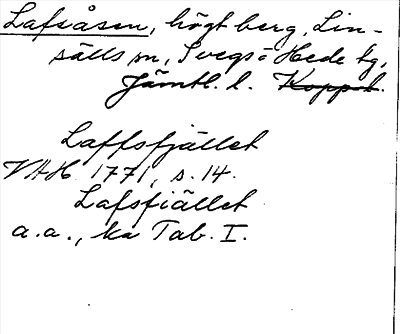 Lafsåsen, högt berg, Lin-
sälls sn, Svegs o Hede tg,
Jämtl. l. Koppeb.
Laffsfjället
VAH 1771, s. 14.
Lafsfiället
a.a., ka Tab. I.